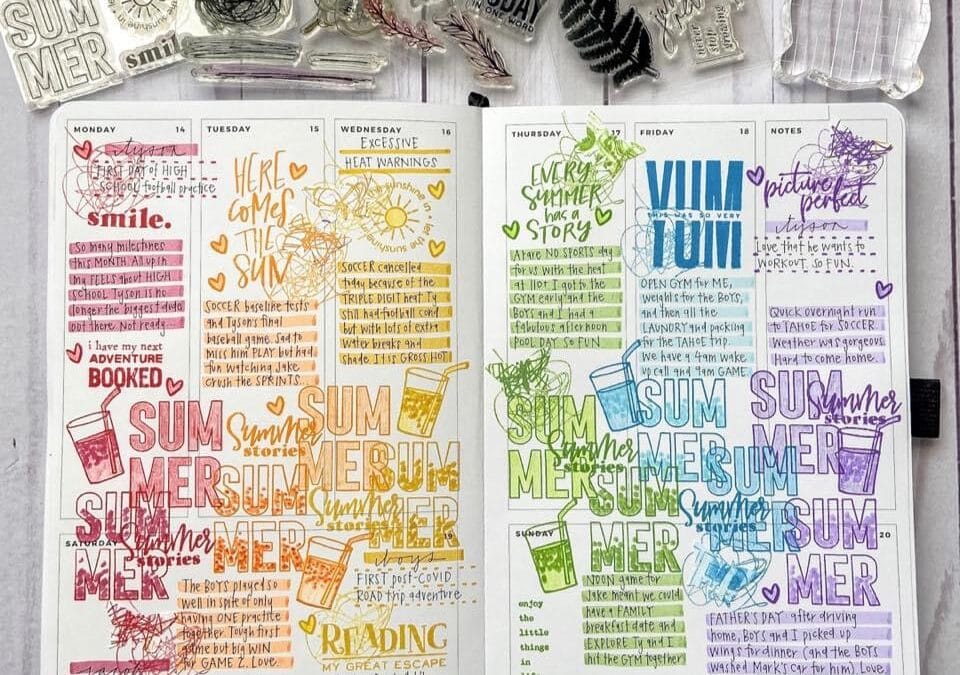 SUM
MER
smile
TODAY
IN ONE WORD
never
stop
smiling
MONDAY 14
tyson
FIRST DAY of HIGH
SCHOOL football practice
smile.
So many milestones
this MONTH. All up in
my FEELS about HIGH
SCHOOL. Tyson is no
longer the biggest dude
out there. Not ready.
i have my next
ADVENTURE
BOOKED
TUESDAY 15
HERE
COMES
THE
SUN
SOCCER baseline tests
and Tyson's final
baseball game. Sad to
miss him PLAY but had
fun watching Jake
crush the SPRINTS.
WEDNESDAY 16
EXCESSIVE
HEAT WARNINGS
sunshine
SOCCER cancelled
today because of the
TRIPLE DIGIT heat. Ty
still had football cond
but with lots of extra
water breaks and
shade. It is GROSS HOT
THURSDAY 17
EVERY
SUMMER
has a
STORY
A rare NO SPORTS day
for us with the heat
at 110! I got to the
GYM early and the
BOYS and I had a
fabulous afternoon
POOL DAY. SO FUN
FRIDAY 18
YUM
THIS WAS SO VERY
YUM
OPEN GYM for ME,
weights for the BOYS,
and then all the
LAUNDRY and packing
for the TAHOE trip.
We have a 4am wake
up call and 9am GAME.
NOTES
picture
perfect
tyson
Love that he wants to
WORKOUT. SO FUN.
Quick overnight run
to TAHOE for SOCCER.
Weather was gorgeous.
Hard to come home.
SUM
MER
Summer
stories
SUM
MER
SUM
MER
SUM
MER
Summer
stories
SUM
MER
Summer
stories
SUM
MER
Summer
stories
SUM
MER
SUM
MER
SUM
MER
Summer
stories
SUM
MER
Summer
stories
SUM
MER
SATURDAY
The BOYS played so
well in spite of only
having ONE practice
together. Tough first
game but big WIN
for GAME 2. Love
19
boys
FIRST post-covid
ROAD trip adventure
READING
MY GREAT ESCAPE
SUNDAY 20
enjoy
the
little
things
in
NOON game for
Jake meant we could
have a FAMILY
breakfast date and
EXPLORE. Ty and I
hit the GYM together
FATHER'S DAY after driving
home, BOYS and I picked up
wings for dinner (and the BOYS
washed Mark's car for him). Love